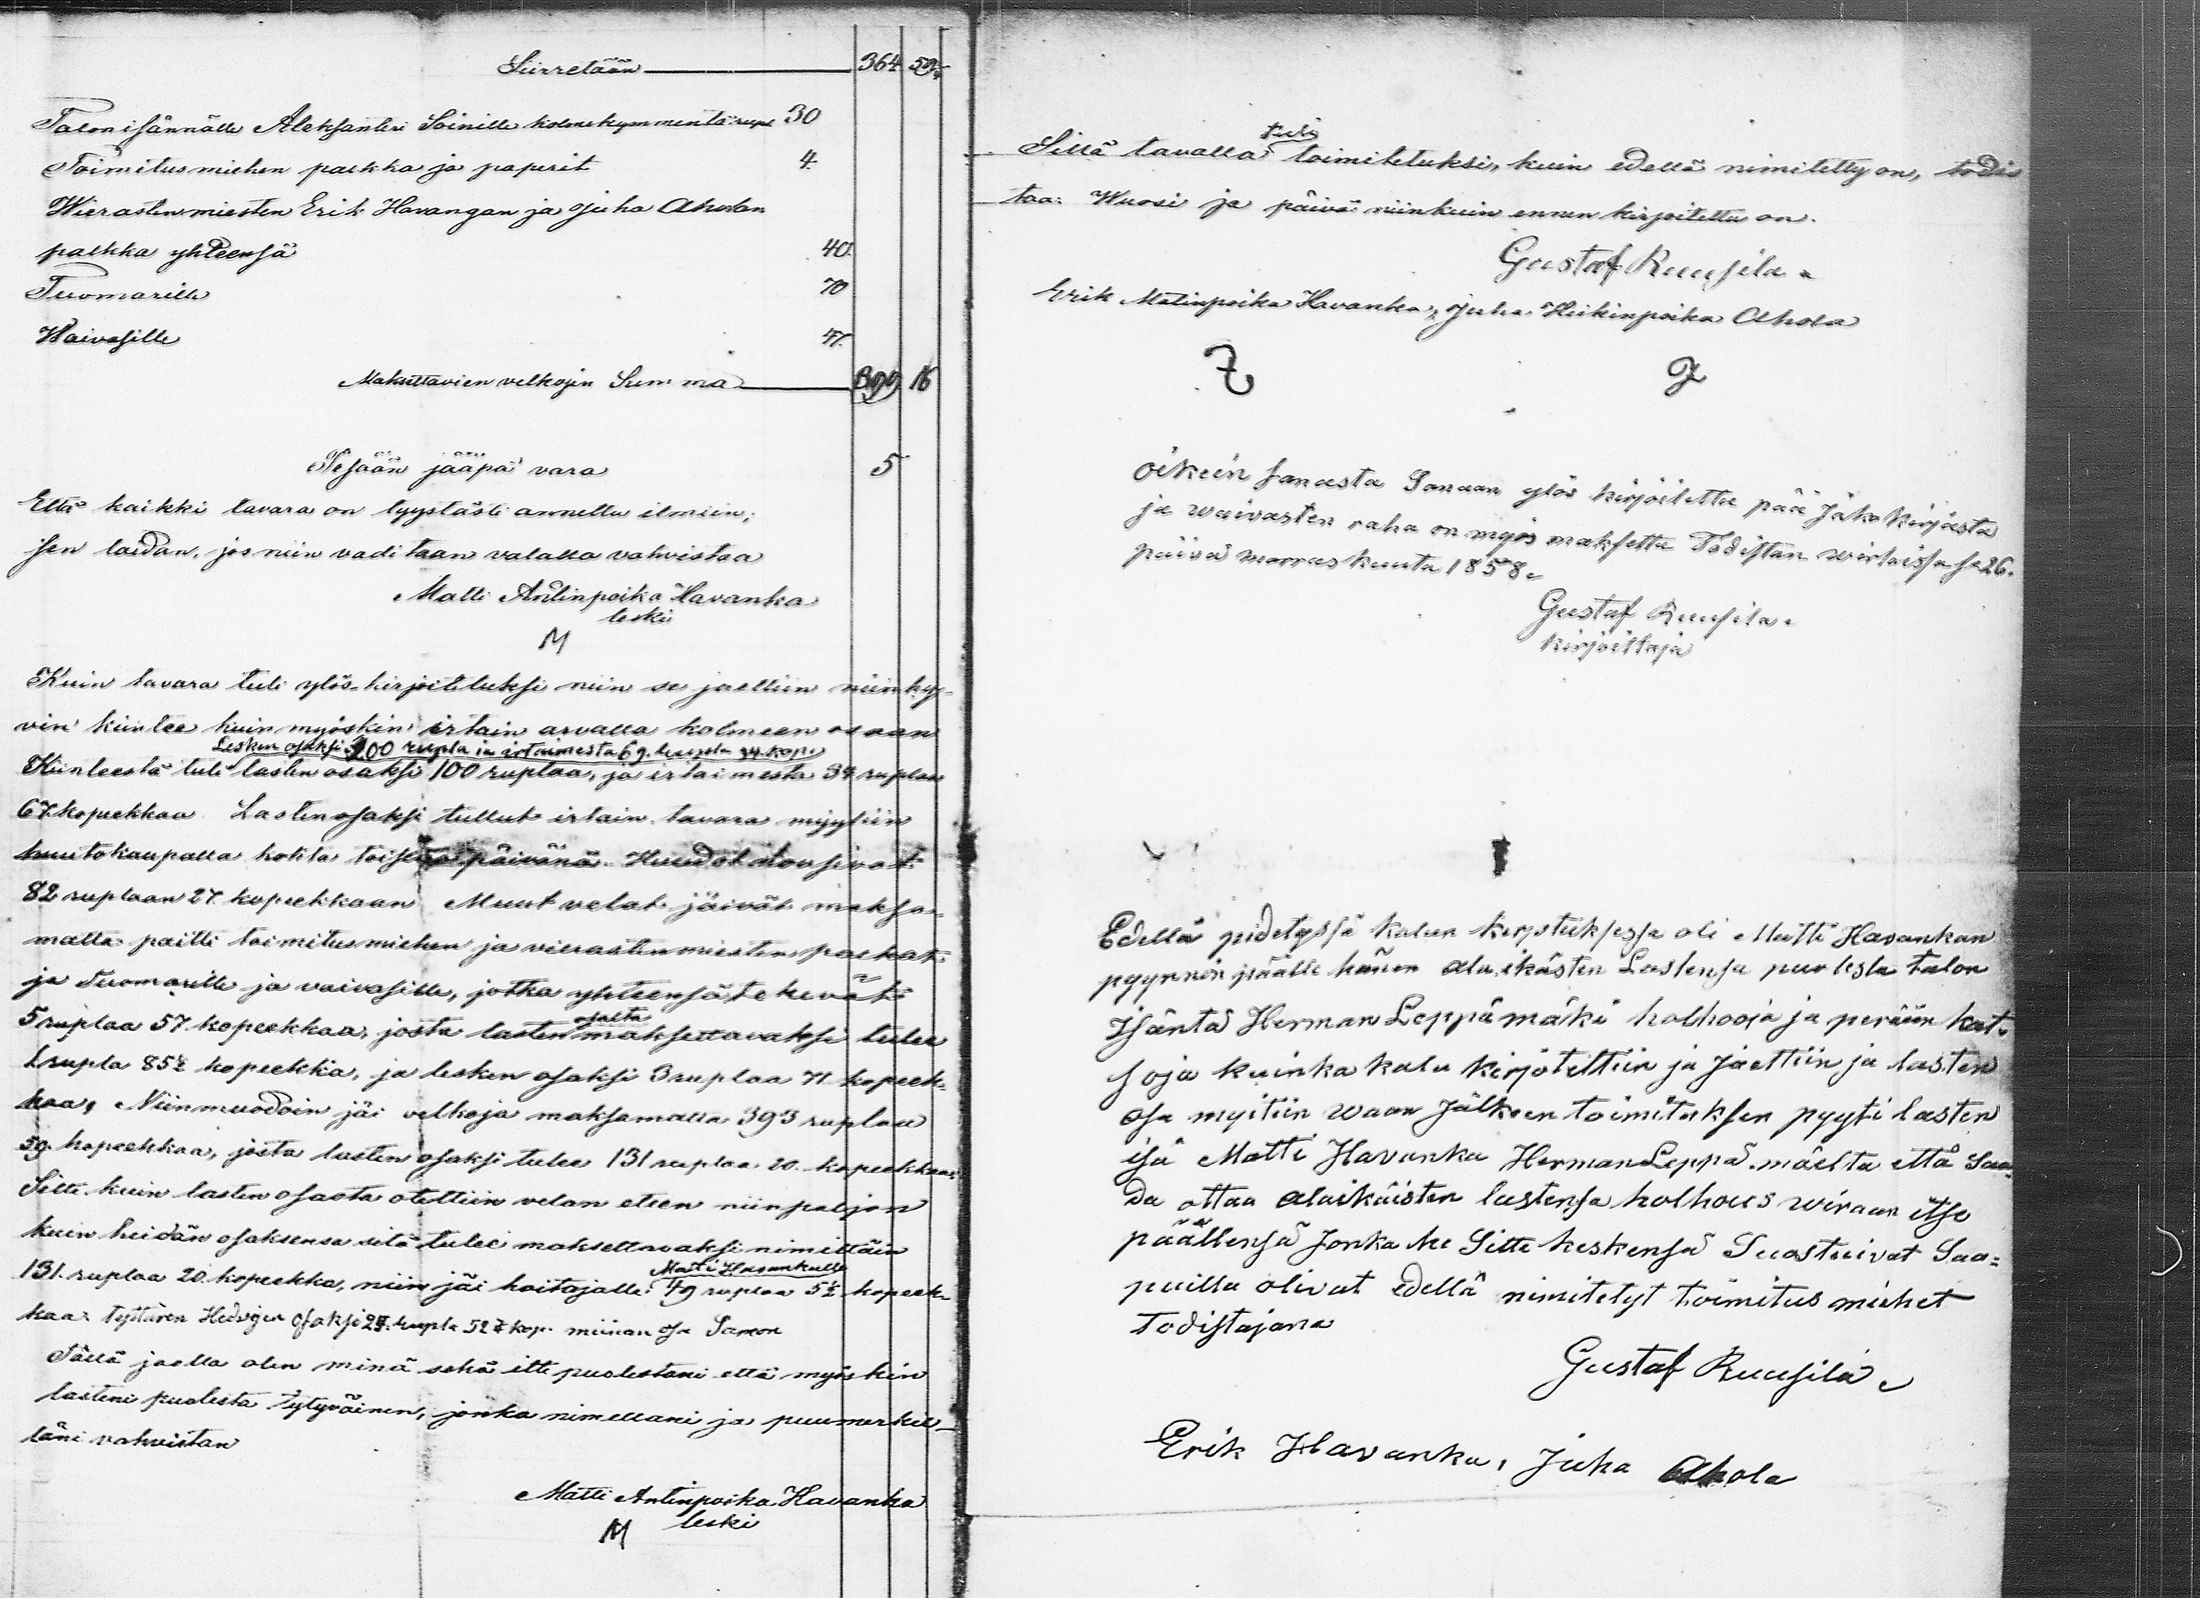 Siirretään 364 59
Talon isännälle Aleksanteri Soinille kolmekymmentä rupl 30
Toimitusmiehen palkka ja paperit 4.
Wierastenmiesten Erik Havangan ja Juha Aholan
palkka yhteensä 40.
Tuomarille 70
Waivasille 47.
Maksettavien velkojen Summa 399 16
Tesään jääpä vara 5
Että kaikki tavara on tyystästi annettu ilmiin;
sen taidan, jos niin vaditaan valalla vahvistaa
Matti Antinpoika Havanka
leski
M
Kuin tavara tuli ylös-kirjoitetuksi niin se jaettiin niin hy-
vin kiintee kuin myöskin irtain arvalla kolmeen osaan
Lesken osaksi 200 rupla ja irtaimesta 69. ruupla 34. kop.
Kiinteestä tuli lasten osaksi 100 ruplaa, ja irtaimesta 34 ruplaa
67 kopeekkaa. Lasten osaksi tullut irtain tavara myytiin
huutokaupalla kohta toisena päivänä. Huudot nousivat
82 ruplaan 27 kopeekkaan. Muut velat jäivät maksa-
matta paitti toimitusmiehen ja vierastenmiesten palkat
ja Tuomarille ja vaivasille, jotka yhteensä tekevät
5 ruplaa 57 kopeekkaa, josta lasten osalta maksettavaksi tulee
1 rupla 85½ kopeekka, ja lesken osaksi 3 ruplaa 71 kopeek-
kaa, Niinmuodoin jäi velkoja maksamatta 393 ruplaa
59. kopeekkaa, josta lasten osaksi tulee 131 ruplaa 20. kopeekkaa.
Sitte kuin lasten osasta otettiin velan eteen niin paljon
kuin heidän osaksensa sitä tulee maksettavaksi nimittäin
Matti Havankalle
131. ruplaa 20. kopeekka, niin jäi hoitajalle: 49 ruplaa 5½ kopeek-
kaa: tyttären Hedvigin osaksi 24. rupla 52¾ kop. miinan osa Samon
Tällä jaolla olen minä sekä itte puolestani että myöskin
lasteni puolesta tytyväinen, jonka nimelläni ja puumerkil-
läni vahvistan
Matti Antinpoika Havanka
leski
M
Sillä tavalla tuli toimitetuksi, kuin edellä nimitetty on, todis
taa: Wuosi ja päivä niinkuin ennen kirjoitettu on.
Gustaf Ruusila.
Erik Matinpoika Havanka, Juha Heikinpoika Ahola
Oikein sanasta Sanaan ylös kirjoitettu pää Jako kirjasta
ja waivasten raha on myös maksettu Todistan wirtaissa se 26.
päivä marras kuuta 1858.
Gustaf Ruusila.
kirjoittaja
Edellä pidetyssä kalun kirjotuksessa oli Matti Havankan
pyynnön päälle hänen ala ikästen Lastensa puolesta talon
Isäntä Herman Leppämäki holhooja ja perään kat-
soja kuinka kalu kirjotettiin ja Jaettiin ja lasten
osa myitiin waan Jälkeen toimituksen pyyti lasten
isä Matti Havanka Herman Leppä-mäelta että Saa-
da ottaa alaikäisten lastensa holhous wiraan itse
päällensä Jonka he Sitte keskensä Suostuivat Saa=
puilla olivat edellä nimitetyt toimitus miehet
Todistajana
Gustaf Ruusila.
Erik Havanka, Juha Ahola